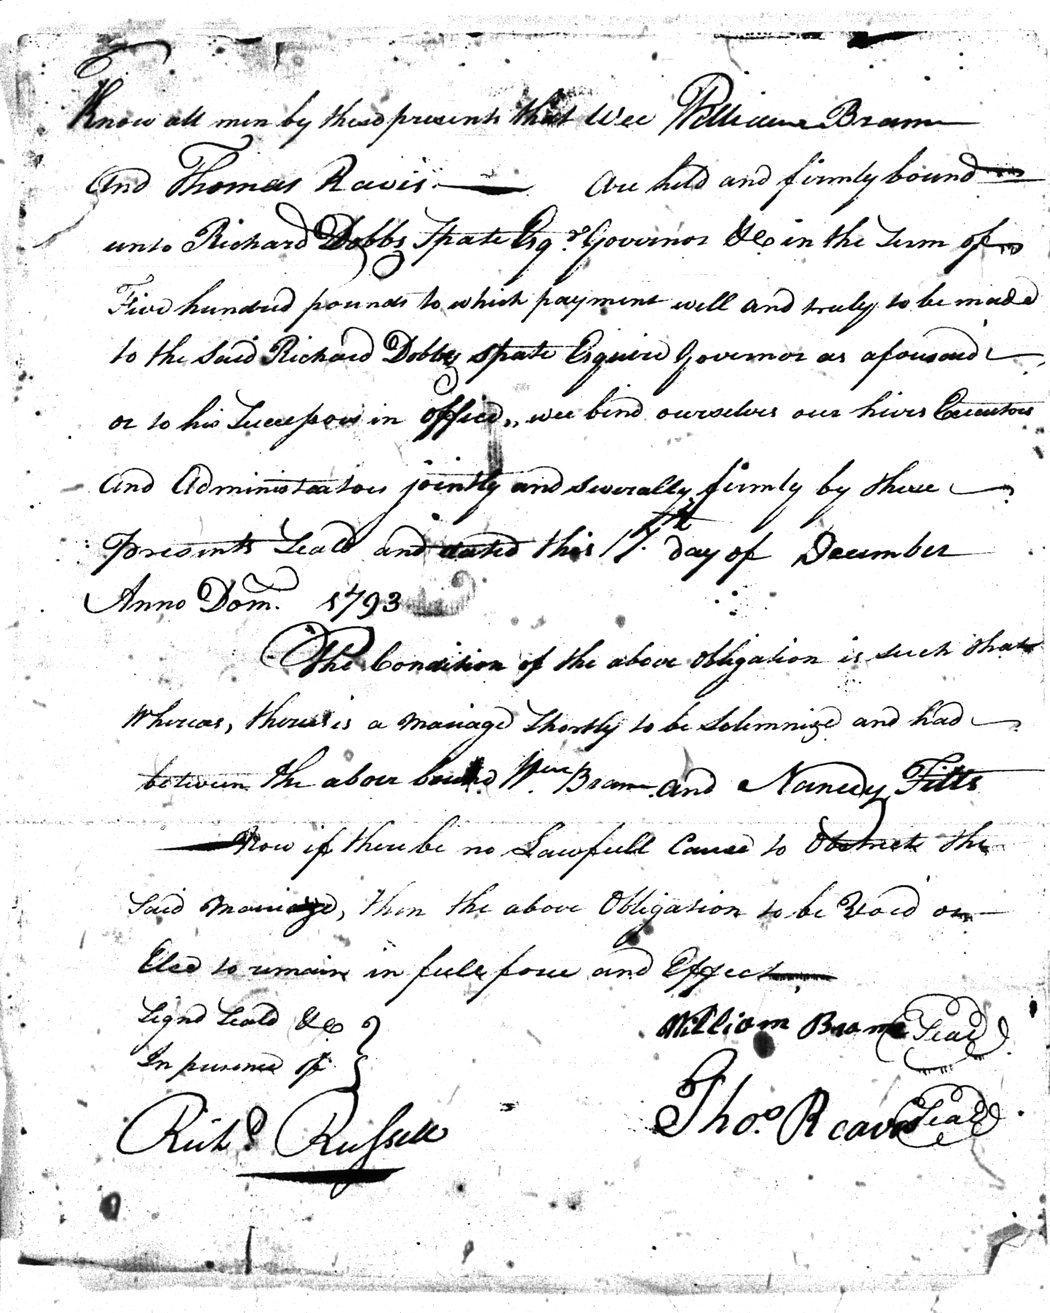 Know all men by these presents that Wee William Bram
And Thomas Ravis Are held and firmly bound
unto Richard Dobbs Spate Esqr. Governor &c in the Sum of
Five hundred pounds to which payment well and truly to be made
to the Said Richard Dobbs Spate Esquire Governor as afousaid
or to his Successors in office, wee bind ourselves our hires Executors
and Administrators jointly and severally firmly by these
Presents Seald and dated this 17th day of December
Anno Dom. 1793
The Condition of the above Obligation is such that
Whereas, there is a Mariage Shortly to be Solemnize and had
between the above bound Wm Bram and Nancy Fitts
Now if there be no Lawfull Cause to Obstruct the
Said Mariage, then the above Obligation to be Void or
Else to remain in full force and Effect
Signd Seald &c
In presence of
William Bram Seal
Thos. Reavis Seal
Richd. Russell